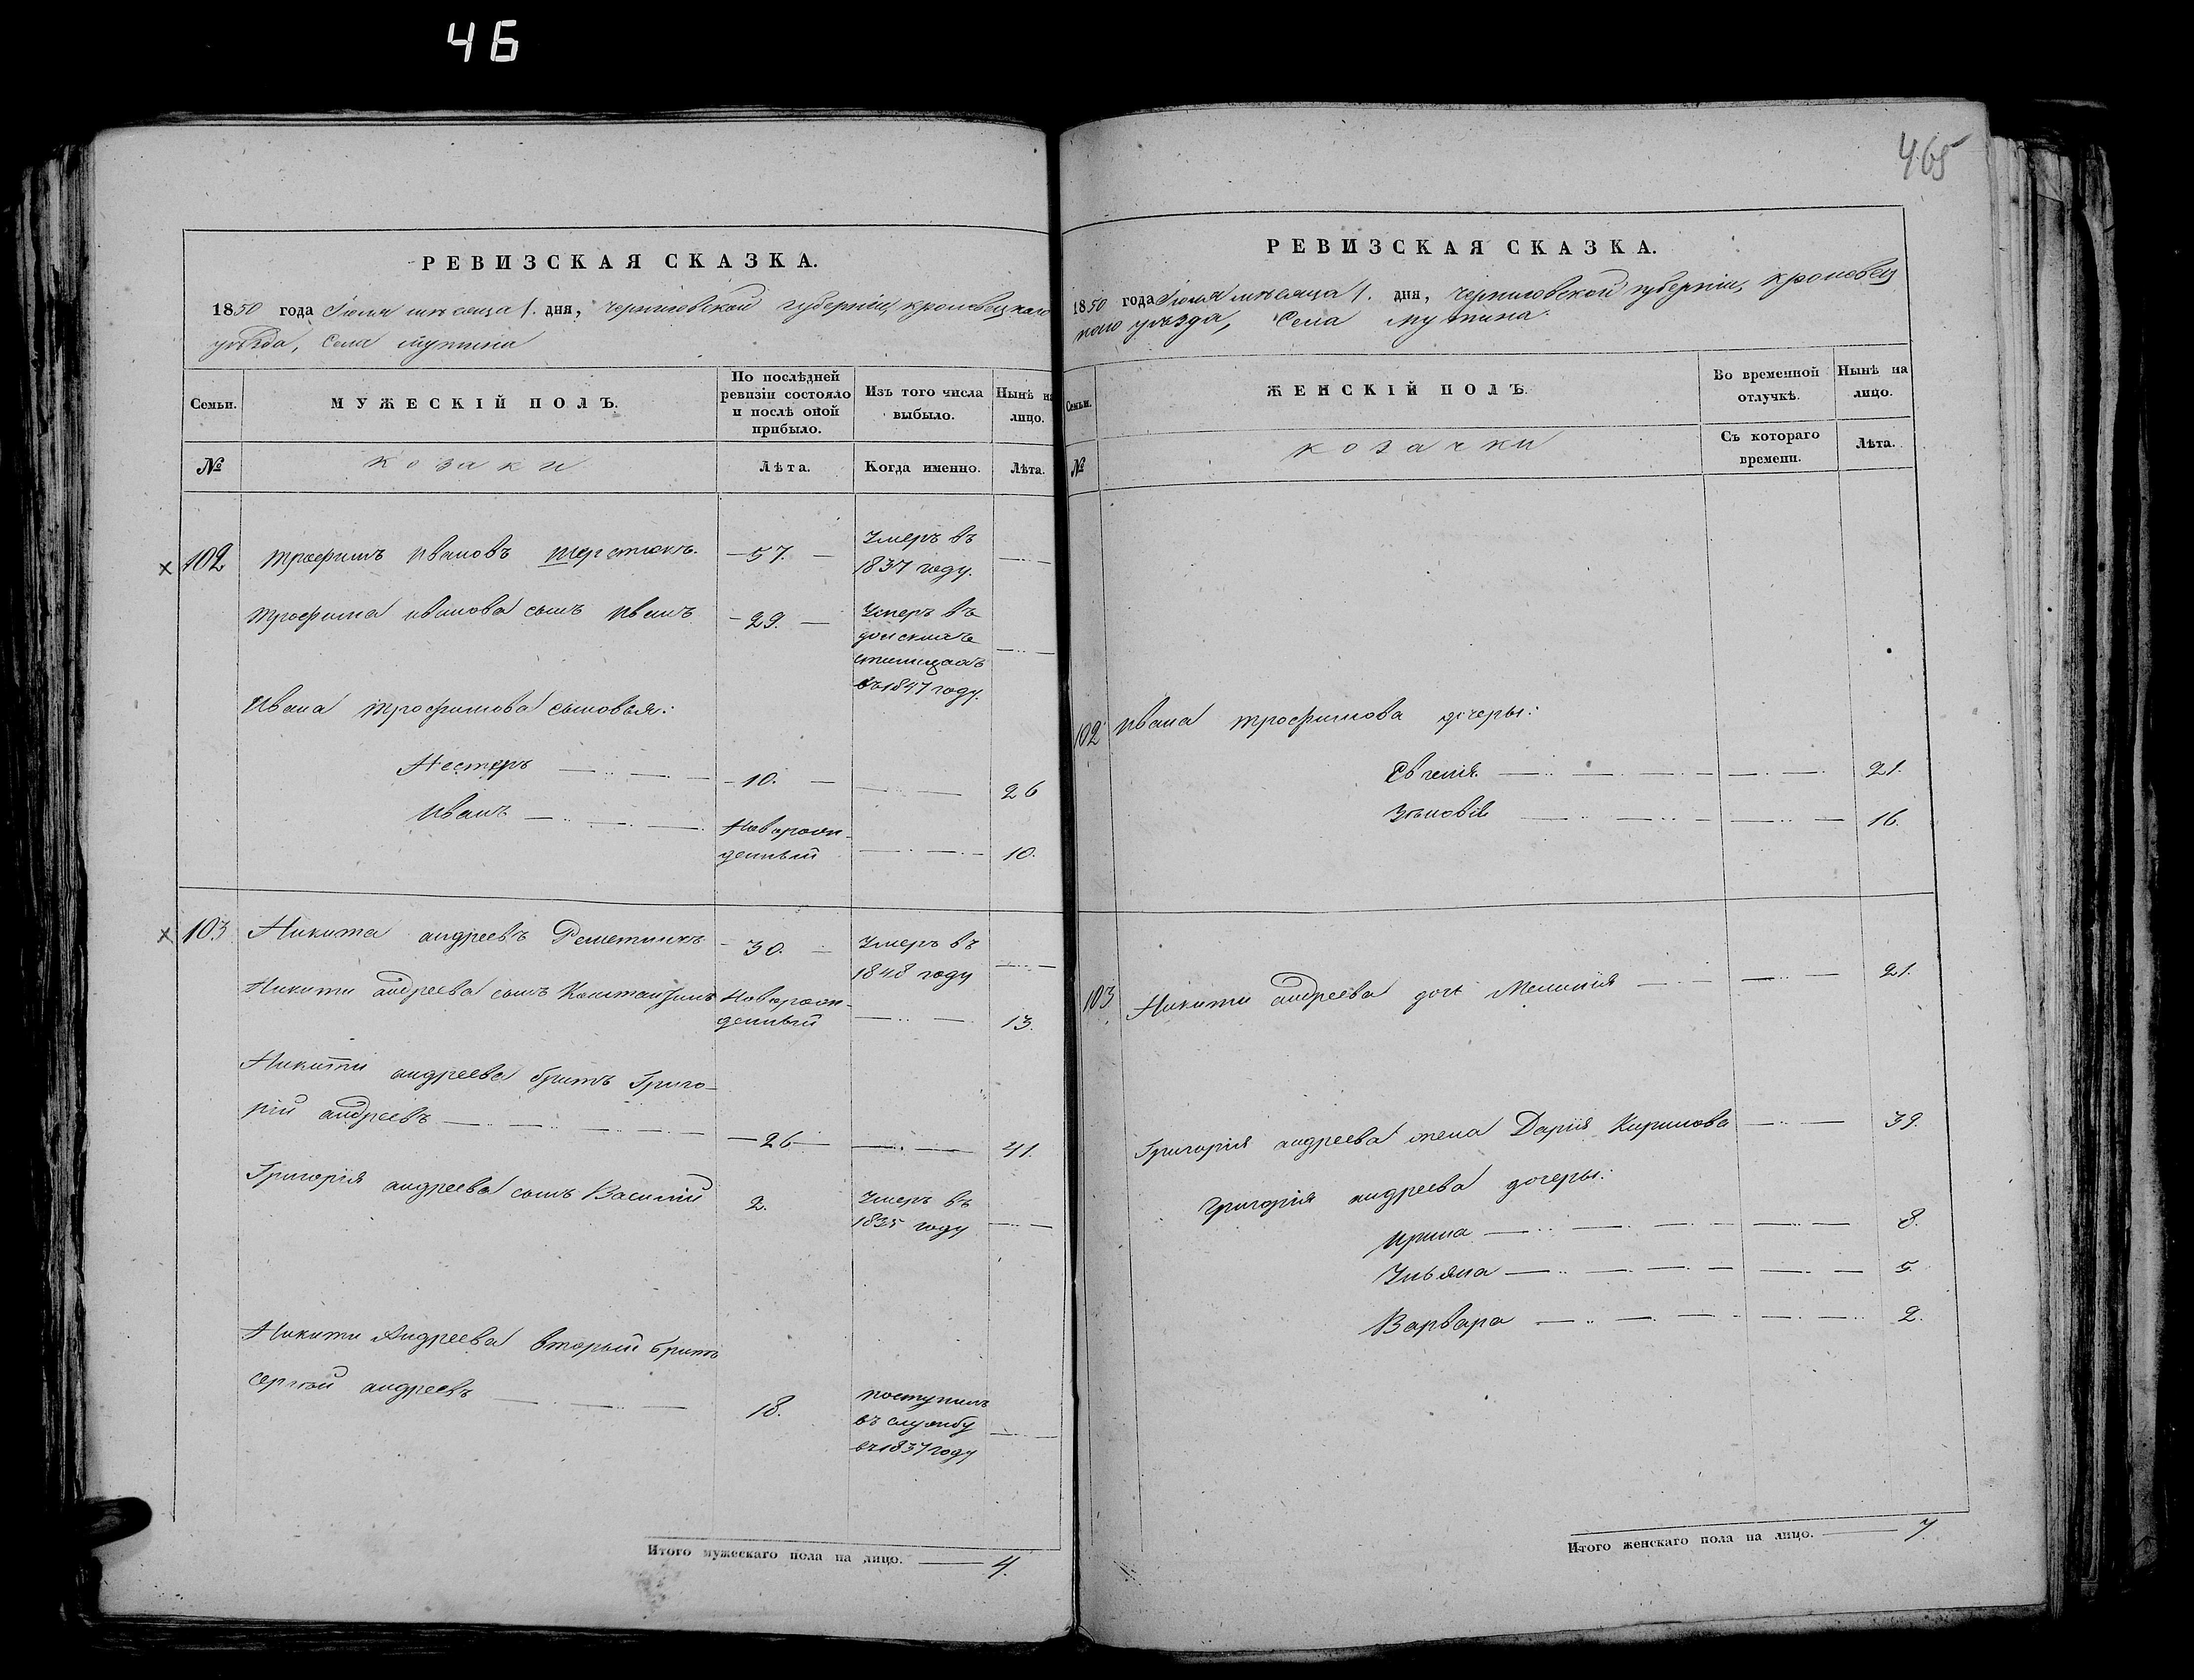 46
465
РЕВИЗСКАЯ СКАЗКА.
1850 года Іюля мѣсяца 1. дня, Черниговской губерніи, Кролевецкаго
уѣзда, Села Мутина
Семьи.
МУЖЕСКІЙ ПОЛЪ.
По послѣдней ревизіи состояло и послѣ оной прибыло.
Изъ того числа выбыло.
Нынѣ на лицо.
№
козаки
Лѣта.
Когда именно.
Лѣта.
102 Трофимъ Ивановъ Шерстюкъ. 57. Умеръ въ
1837 году.
Трофима Иванова сынъ Иванъ 29. Умеръ въ
въ 1847 году.
Ивана Трофимова сыновья:
Нестеръ 10. 26
Иванъ Новорож-
денный 10.
103 Никита Андреевъ Решетникъ 30. Умеръ въ
1848 году
Никиты Андреева сынъ Константинъ Новорож-
денный 13.
Никиты Андреева братъ Григо-
рій Андреевъ 26 41.
Григорія Андреева сынъ Василій 2. Умеръ въ
1835 году
Никиты Андреева вторый братъ
Сергѣй Андреевъ 18. поступилъ
въ службу
въ 1837 году
Итого мужескаго пола на лицо. 4.
РЕВИЗСКАЯ СКАЗКА.
1850 года Іюля мѣсяца 1. дня, Черниговской губерніи, Кролевец
каго уѣзда, Села Мутина.
Семьи.
ЖЕНСКІЙ ПОЛЪ.
Во временной отлучкѣ.
Нынѣ на лицо.
№
козачки
Съ котораго времени.
Лѣта.
102 Ивана Трофимова дочеры:
Евгенія 21.
Зѣновія 16.
103 Никиты Андреева дочь Меланія 21.
Григорія Андреева жена Дарія Кирилова 39.
Григорія Андреева дочеры:
Ирина 8.
Ульяна 5.
Варвара 2.
Итого женскаго пола на лицо. 7.